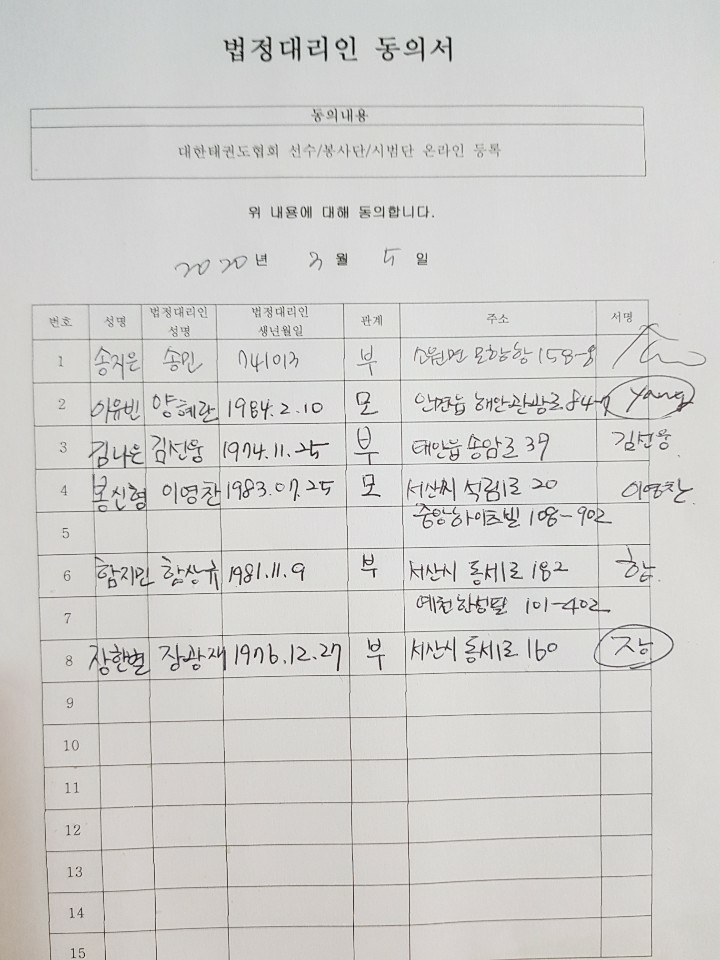 법정대리인 동의서
동의내용
대한태권도협회 선수/봉사단/시범단 온라인 등록
위 내용에 대해 동의합니다.
2020년 3월 5일
번호 성명 법정대리인 성명 법정대리인 생년월일 관계 주소 서명
1 송지은 송민 741013 부 소원면 모항항 158-8
2 이유빈 양혜란 1984.2.10 모 안면읍 해안관광로 84-7 yang
3 김나은 김선웅 1974.11.25 부 태안읍 송암로 39 김선웅
4 봉신형 이영찬 1983.07.25 모 서산시 석림1로 20 이영찬
5 중앙하이츠빌 108-902
6 함지민 함상규 1981.11.9 부 서산시 동서1로 182 함
7 예천한성필 101-402
8 장한별 장광재 1976.12.27 부 서산시 동서1로 160 장
9
10
11
12
13
14
15